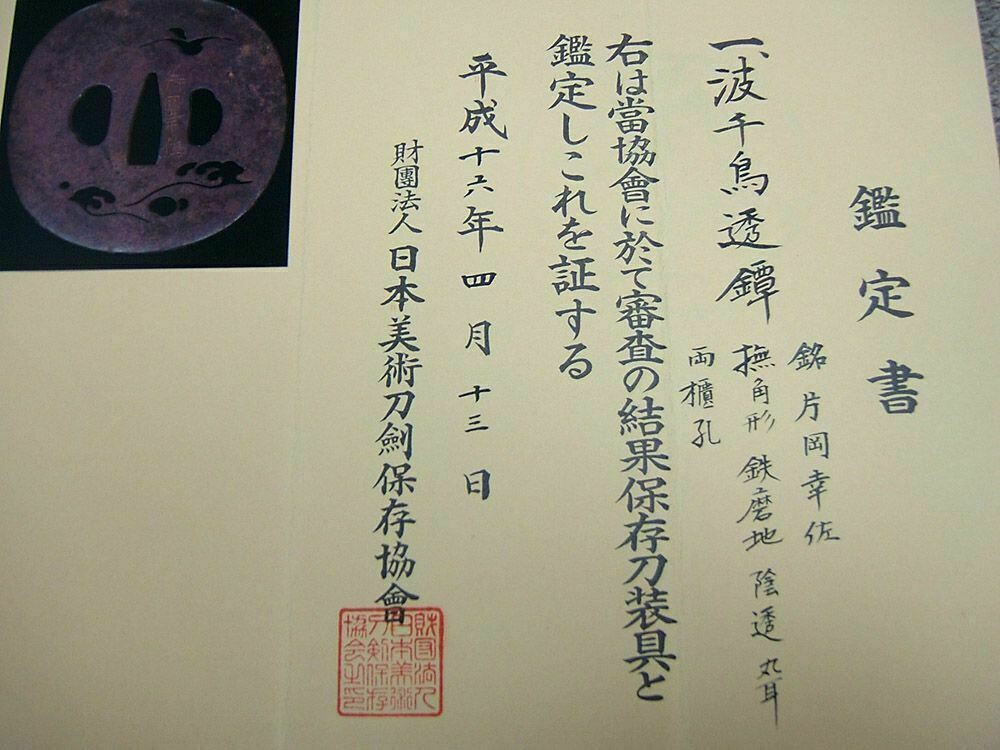 鑑定書
一、波千鳥透鐔
銘 片岡幸佐
撫角形 鉄磨地 陰透 丸耳
両櫃孔
右は當協會に於て審査の結果保存刀装具と
鑑定しこれを証する
平成十六年四月十三日
財團法人日本美術刀劍保存協會
財団法人
日本美術
刀剣保存
協会之印